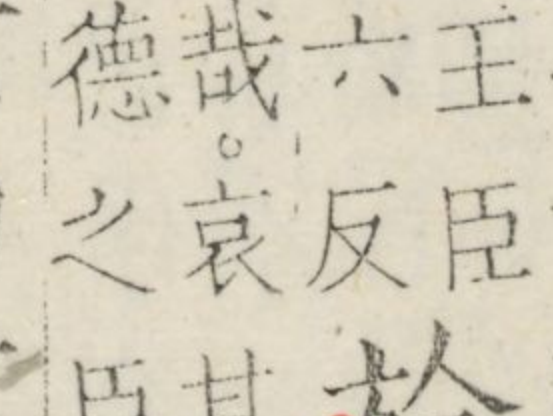 王臣
六反
哉。哀
德之臣